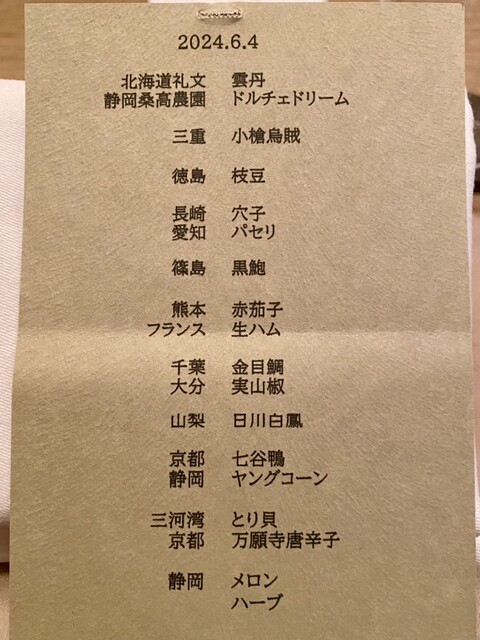 2024.6.4
北海道礼文 雲丹
静岡桑高農園 ドルチェドリーム
三重 小槍烏賊
徳島 枝豆
長崎 穴子
愛知 パセリ
篠島 黒鮑
熊本 赤茄子
フランス 生ハム
千葉 金目鯛
大分 実山椒
山梨 日川白鳳
京都 七谷鴨
静岡 ヤングコーン
三河湾 とり貝
京都 万願寺唐辛子
静岡 メロン
ハーブ